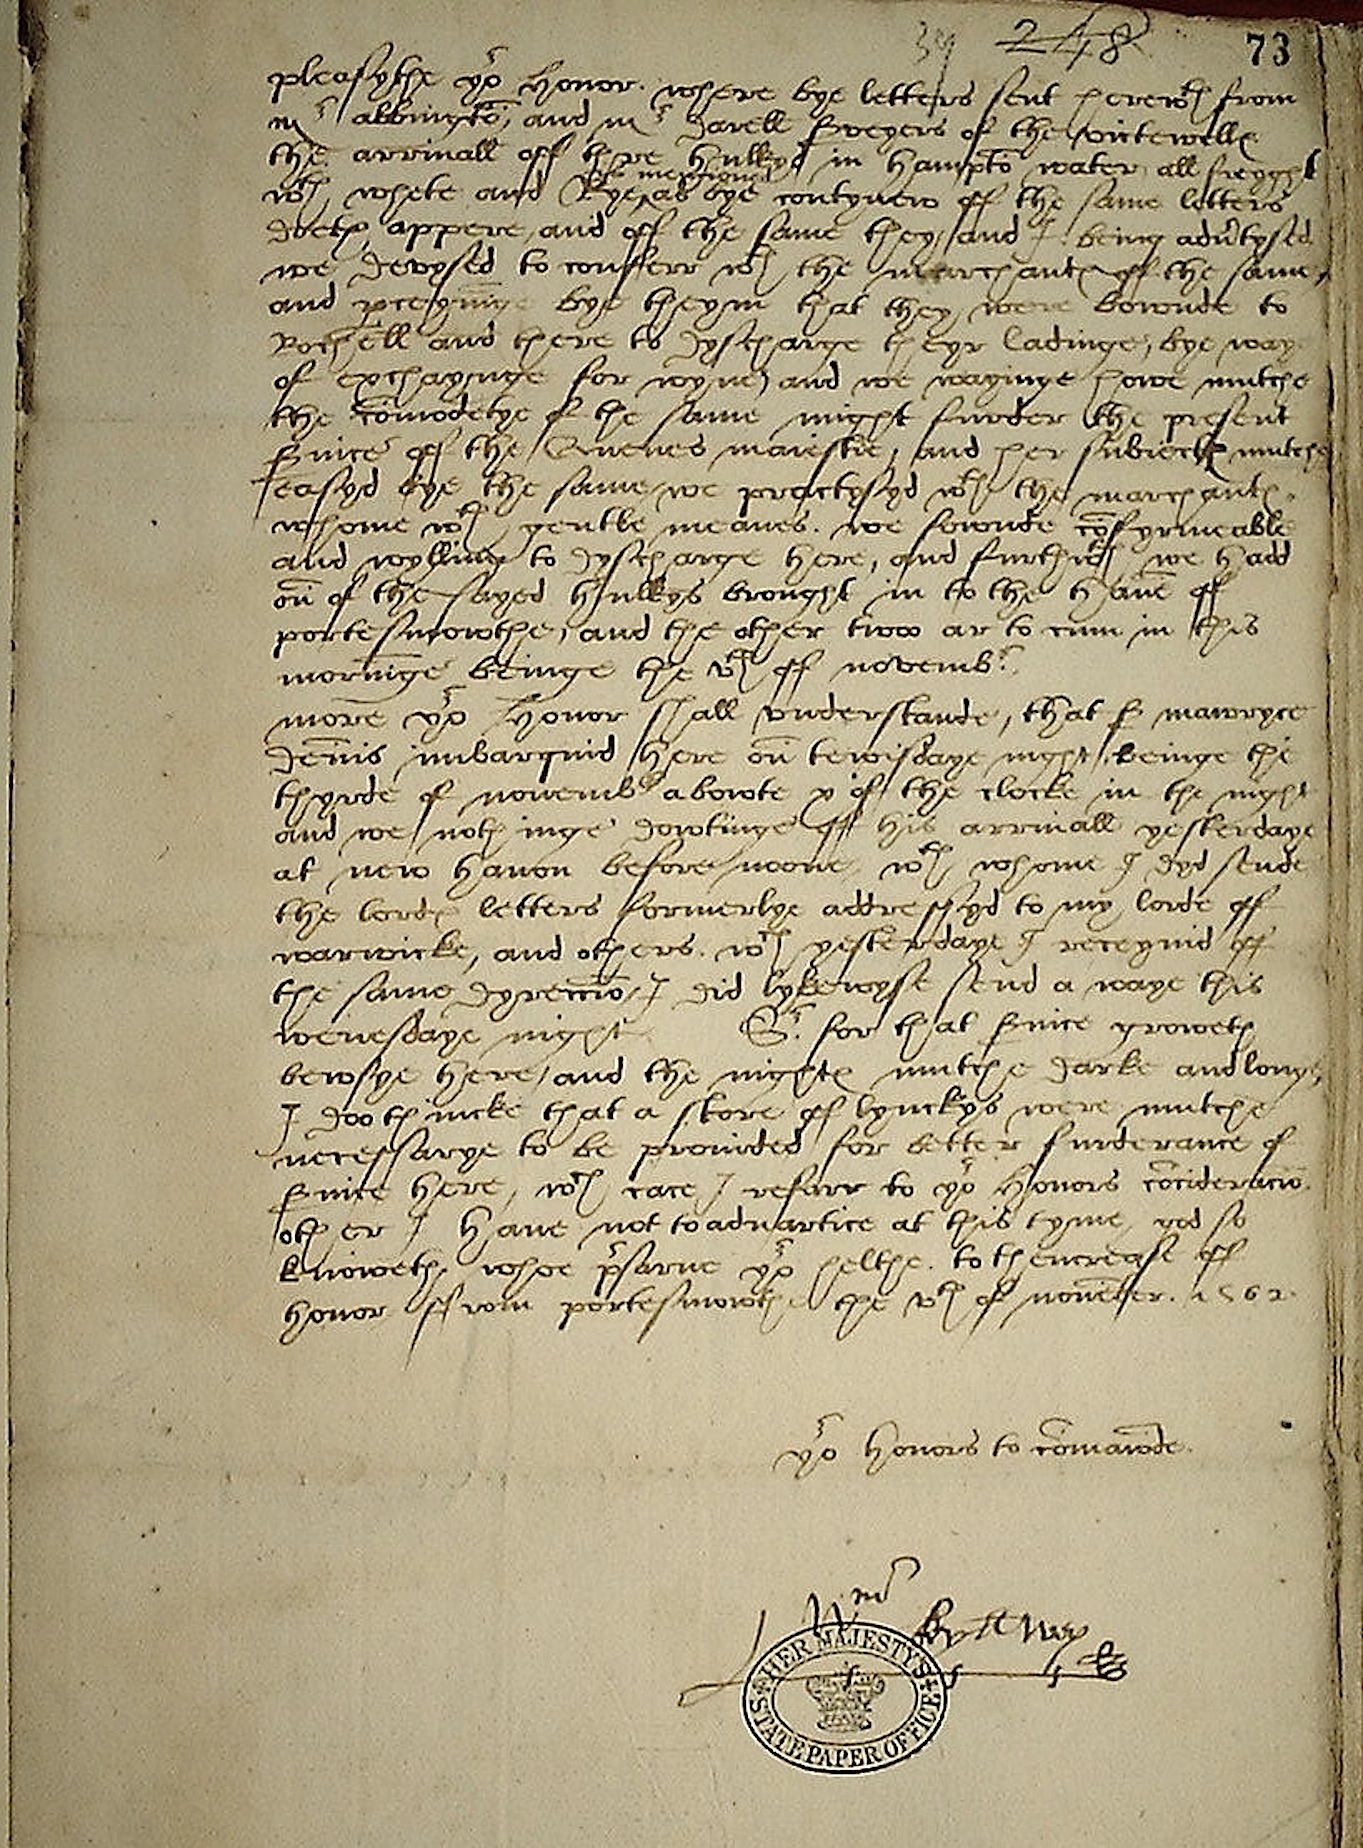 248
73
pleasythe yor honor. where bye letters sent herewth from
mr abbington, and mr Darell of the
the arrivall off thre hulkys in hampto water all freyght
is mencioned
wth whete and Rye, as bye contynew off the same letters
doeth appere, and off the same they, and I being advtysed
we devysed to conferr wth the marchants off the same,
and pceyvinge bye theym that they were bownde to
Rochell and there to dyscharge theyr ladinge, bye way
of exchaynge for wyne, and we wayinge howe mutche
the comodetye of the same might furder the present
svice off the Quenes maiestie, and her subiects mutche
easyd bye the same, we practysyd wth the marchants.
whome wth gentle meanes. we fownde cofyrmeable
and wylling to dyscharge here, and furthwth we hadd
on of the sayed hulkys brought in to the haven off
portesmowthe, and the other twoo ar to cum in this
morninge beinge the vth off novembr.
more yor Honor shall vnderstande, that Sr mawryce
denis imbarquid here on tewisdaye night beinge the
thyrde of novembr abowte x of the clocke in the night
and we nothinge dowtinge off his arrivall yesterdaye
at new haven before noone, wth whome I dyd sende
the lords letters formerlye addressyd to my lorde off
warwicke, and others. wch yesterdaye I receyvid off
the same dyreccio, I did lykewyse send a waye this
wenesdaye night Sr. for that svice groweth
bewsye here, and the nights mutche darke and longe,
I doo thincke that a skore off lynckys were mutche
necessarye to be provided for better furderance of
svice here, wch cace I referr to yor Honors consideracio.
other I have not to advartice at this tyme, god so
knoweth, whoe prsarve yor helthe. to thencrease off
honor ffrom portesmowth the vth of november. 1562.
yor honors to comawnde.
Wm
HER MAJESTY'S
STATE PAPER OFFICE